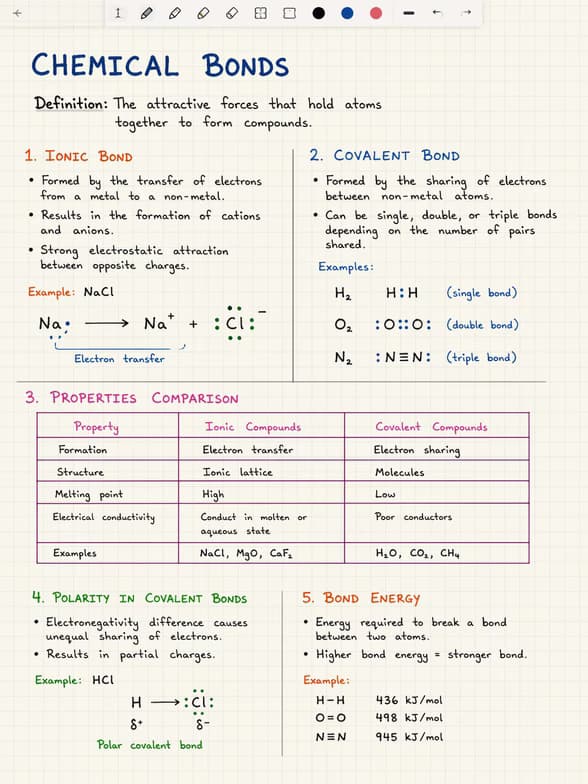 CHEMICAL BONDS
Definition: The attractive forces that hold atoms
together to form compounds.
1. IONIC BOND
• Formed by the transfer of electrons
from a metal to a non-metal.
• Results in the formation of cations
and anions.
• Strong electrostatic attraction
between opposite charges.
Example: NaCl
Na: ⟶ Na⁺ + :Cl:⁻
Electron transfer
2. COVALENT BOND
• Formed by the sharing of electrons
between non-metal atoms.
• Can be single, double, or triple bonds
depending on the number of pairs
shared.
Examples:
H₂ H:H (single bond)
O₂ :O::O: (double bond)
N₂ :N≡N: (triple bond)
3. PROPERTIES COMPARISON
Property Ionic Compounds Covalent Compounds
Formation Electron transfer Electron sharing
Structure Ionic lattice Molecules
Melting point High Low
Electrical conductivity Conduct in molten or Poor conductors
aqueous state
Examples NaCl, MgO, CaF₂ H₂O, CO₂, CH₄
4. POLARITY IN COVALENT BONDS
• Electronegativity difference causes
unequal sharing of electrons.
• Results in partial charges.
Example: HCl
H ⟶ :Cl:
δ⁺ δ⁻
Polar covalent bond
5. BOND ENERGY
• Energy required to break a bond
between two atoms.
• Higher bond energy = stronger bond.
Example:
H–H 436 kJ/mol
O=O 498 kJ/mol
N≡N 945 kJ/mol